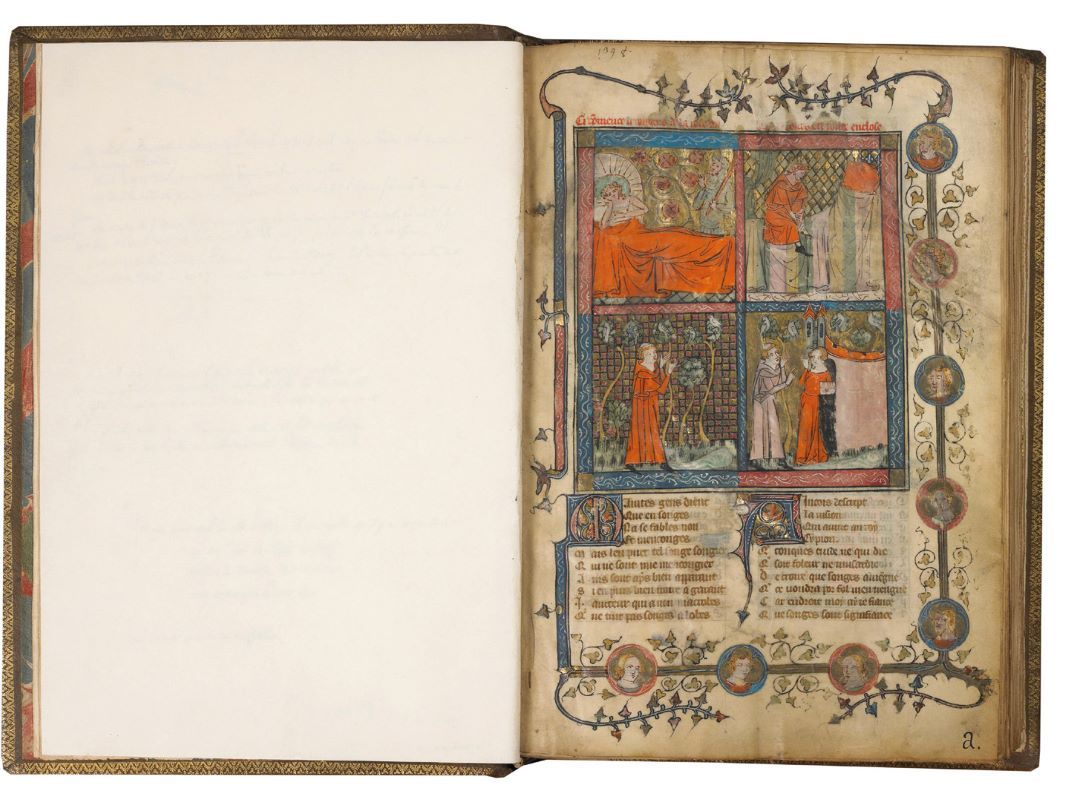 Ci cõmence li de la enclose
Maintes gens dient
Que en songes
Na se fables non
Et menconges
Mais len puet tel songe songier
Qui ne sont mie mencongier
Ains sont aps bien aparant
Si en puis bien a garant
I aucteur qui a non macrobes
Q ne tint pas songes a lobes
Aincois descript
la vision
Qui avint au roy
Cypion
Q conques cuide ne qui die
Q soit foleur ne musardie
De croire que songes aviegne
Q ce voudra por fol men tiengne
Car endroit moy ay ie fiance
Que songes sont signifiance
a.